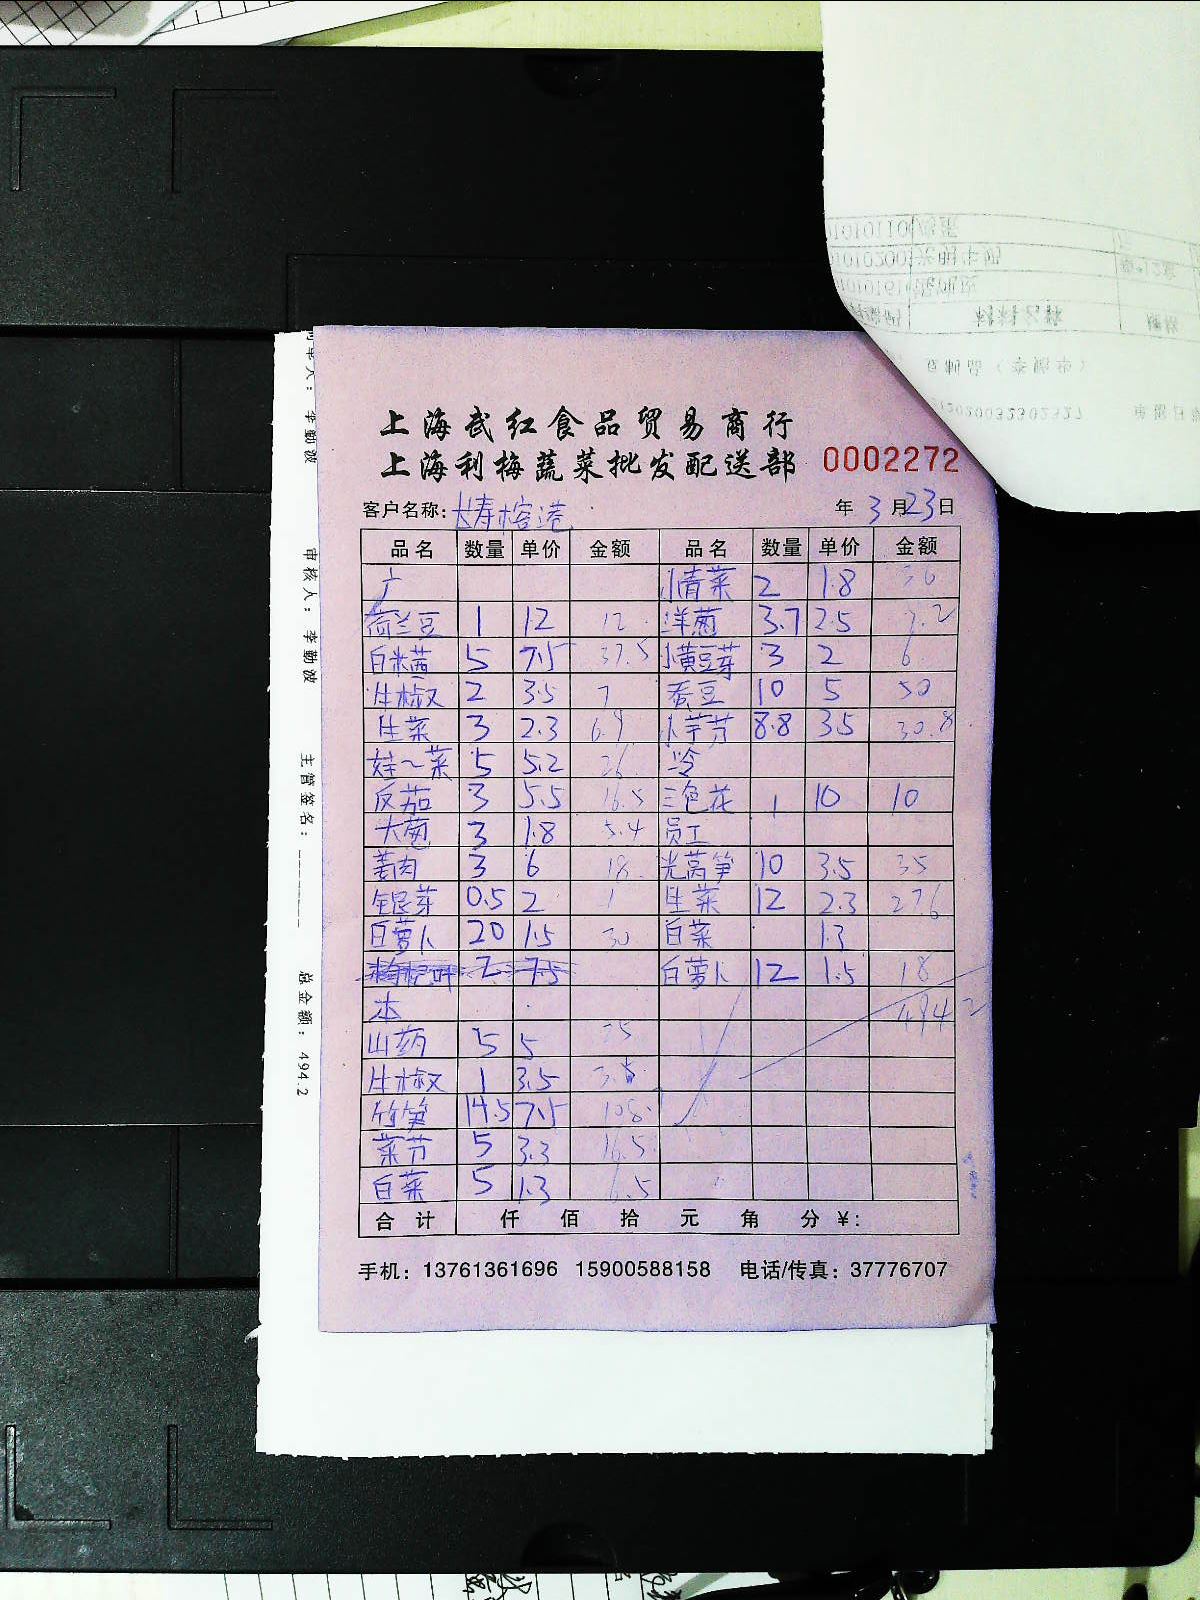 上海武红食品贸易商行
上海利梅蔬菜批发配送部 0002272
客户名称: 长寿榕港 年 3 月 23 日
品名 数量 单价 金额 品名 数量 单价 金额
广 小青菜 2 1.8 3.6
荷兰豆 1 12 12 洋葱 3.7 2.5 9.2
白米苋 5 7.5 37.5 小黄豆芽 3 2 6
牛椒 2 3.5 7 蚕豆 10 5 50
生菜 3 2.3 6.9 小芋艿 8.8 3.5 30.8
娃～菜 5 5.2 26 冷
反茄 3 5.5 16.5 三色花 1 10 10
大葱 3 1.8 5.4 员工
姜肉 3 6 18 光莴笋 10 3.5 35
银芽 0.5 2 1 生菜 12 2.3 27.6
白萝卜 20 1.5 30 白菜 1.3
枸杞叶 2 7.5 白萝卜 12 1.5 18
本 494.2
山药 5 5 25
牛椒 1 3.5 3.5
竹笋 14.5 7.5 108.
菜芯 5 3.3 16.5
白菜 5 1.3 6.5
合计 仟 佰 拾 元 角 分 ¥:
手机: 13761361696 15900588158 电话/传真: 37776707
李勤波
审核人: 李勤波
主管签名: ________
总金额: 494.2